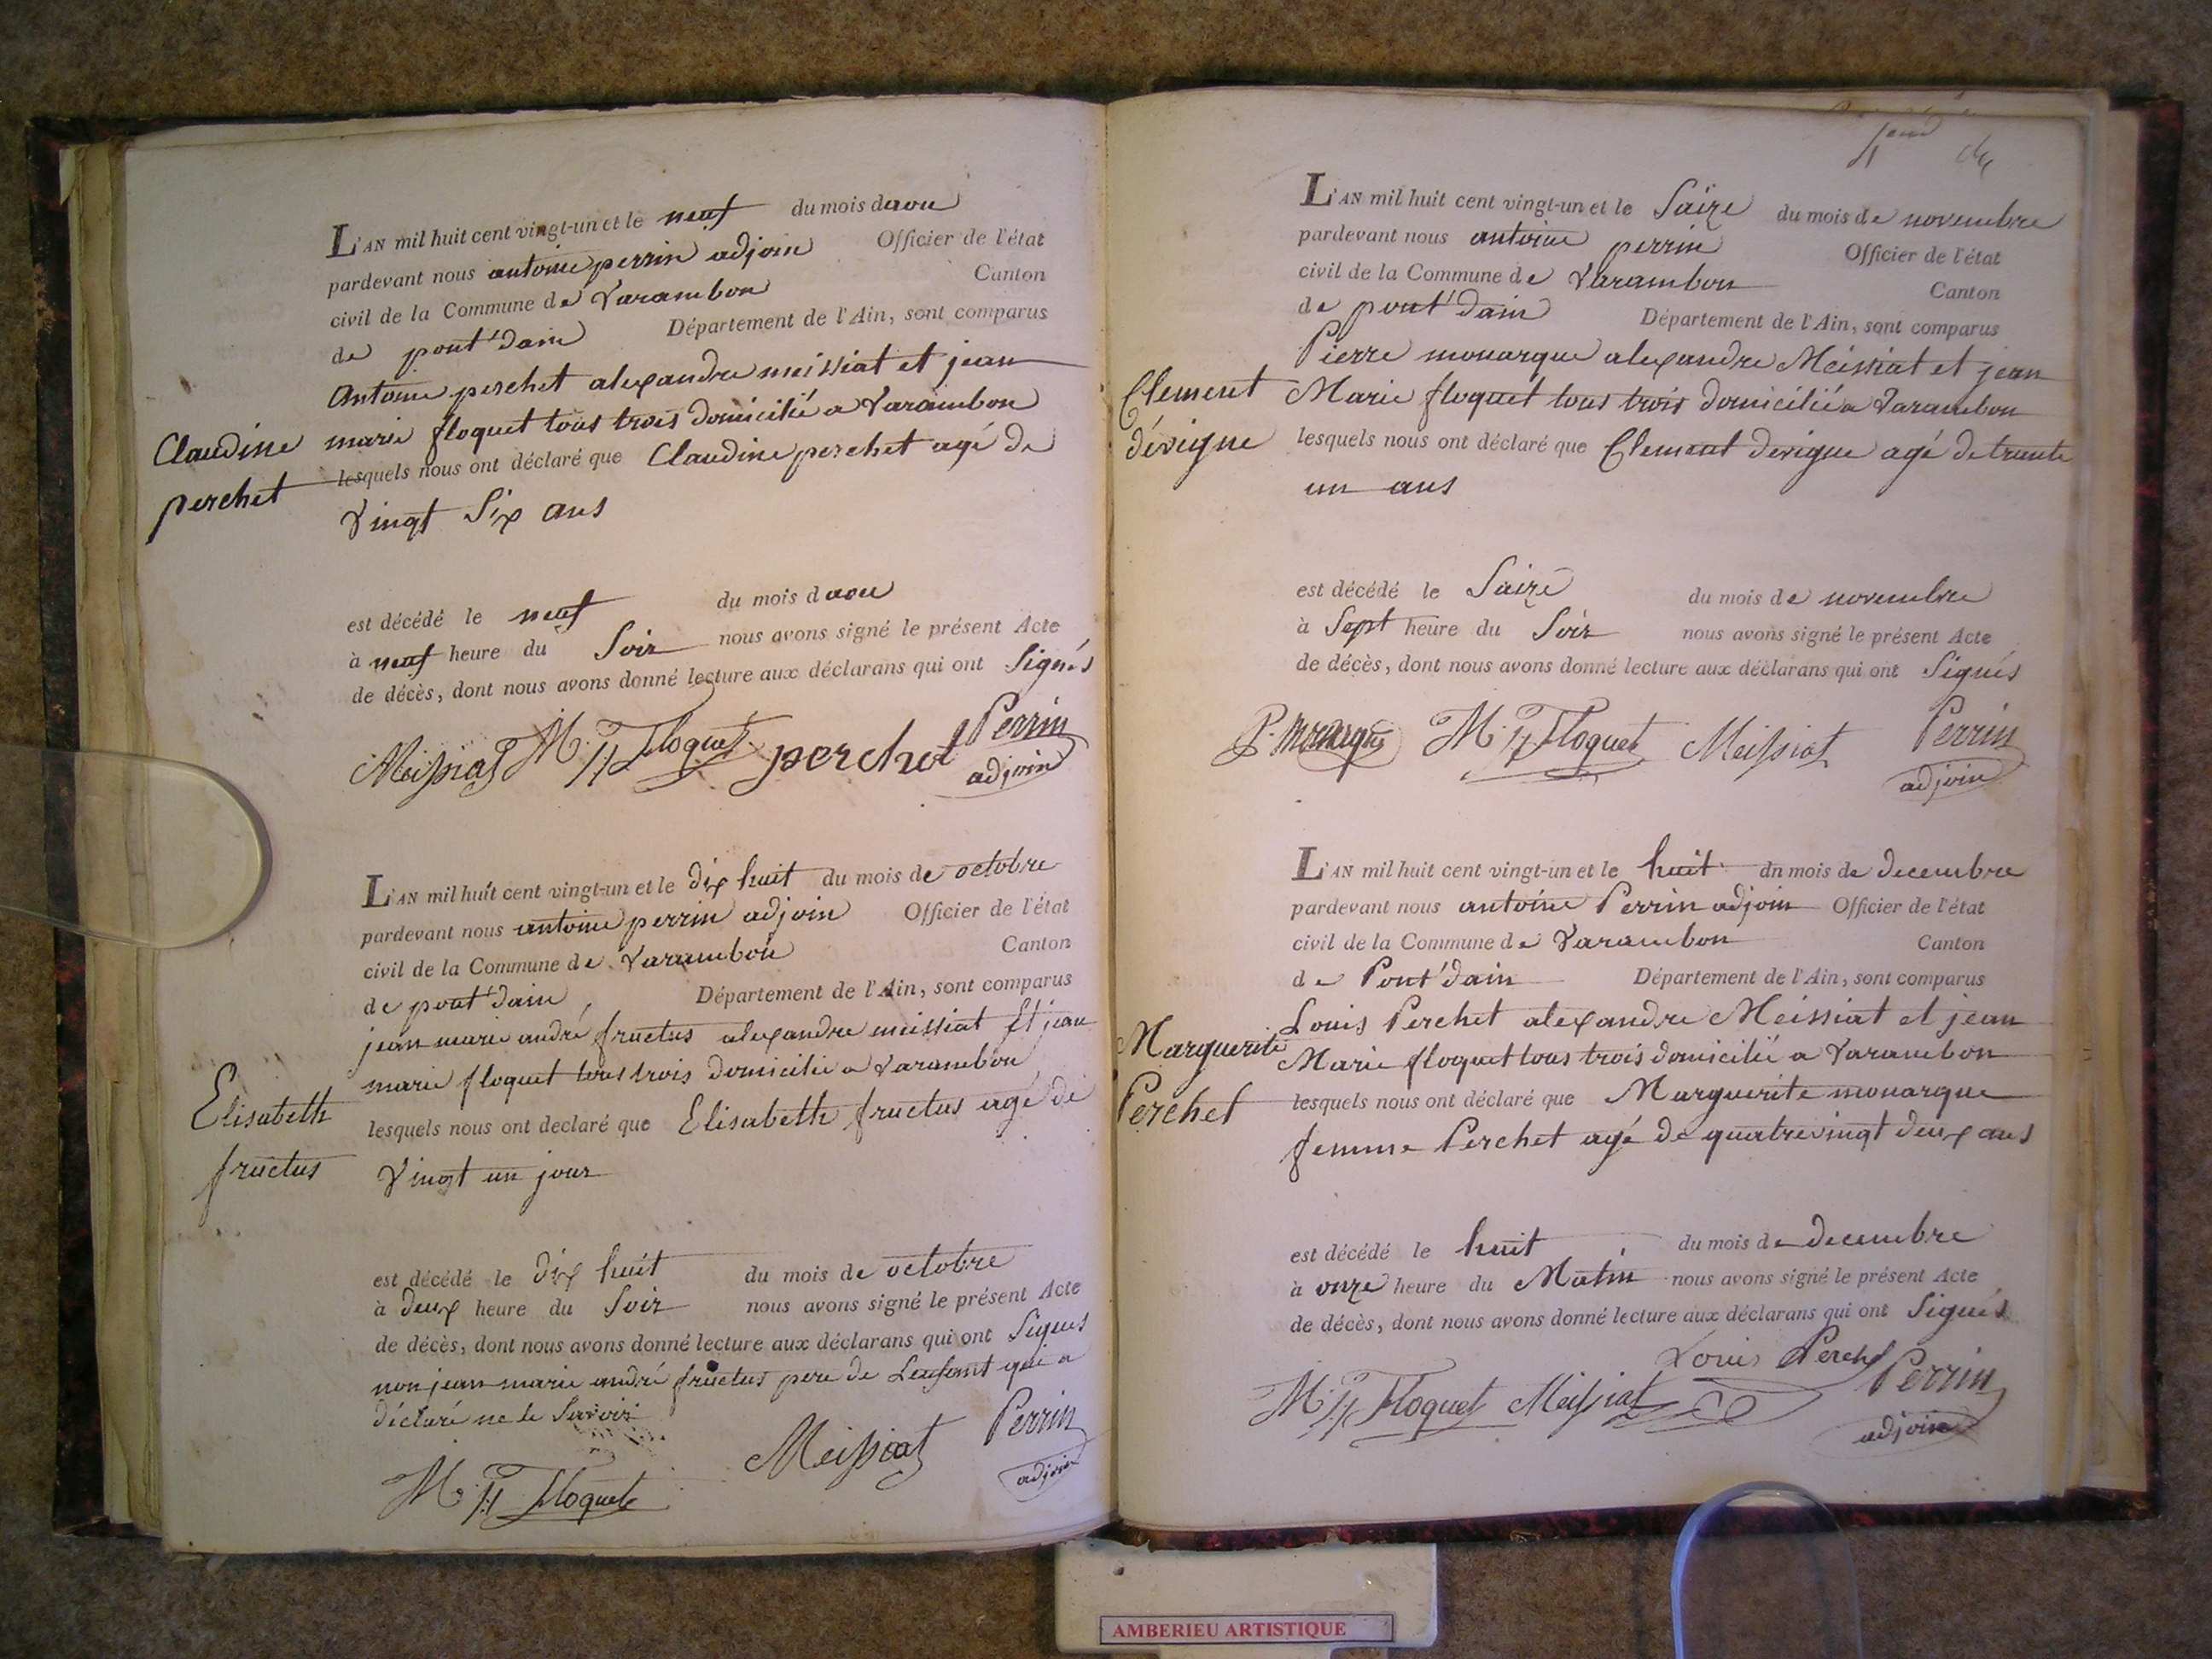 L'AN mil huit cent vingt-un et le neuf du mois daou
pardevant nous antoine perrin adjoin Officier de l'état
civil de la Commune de Varambon Canton
de pont'dain Département de l'Ain, sont comparus
Antoine perchet alexandre meissiat et jean
marie floquet tous trois domicilié a Varambon
Claudine
perchet
lesquels nous ont déclaré que Claudine perchet agé de
Vingt Six ans
est décédé le neuf du mois daou
à neuf heure du Soir nous avons signé le présent Acte
de décès, dont nous avons donné lecture aux déclarans qui ont Signés
Meissiat M Floquet perchet Perrin
adjoin
L'AN mil huit cent vingt-un et le dix huit du mois de octobre
pardevant nous antoine perrin adjoin Officier de l'état
civil de la Commune de Varambon Canton
de pont'dain Département de l'Ain, sont comparus
jean marie andré fructus alexandre meissiat Et jean
marie floquet tous trois domicilié a Varambon
Elisabeth
fructus
lesquels nous ont declaré que Elisabeth fructus agé de
Vingt un jour
est décédé le dix huit du mois de octobre
à deux heure du Soir nous avons signé le présent Acte
de décès, dont nous avons donné lecture aux déclarans qui ont Signés
non jean marie andré fructus pere de Lenfant qui a
déclaré ne le Savoir
M Floquet Meissiat Perrin
adjoin
L'AN mil huit cent vingt-un et le Saize du mois de novembre
pardevant nous antoine perrin Officier de l'état
civil de la Commune de Varambon Canton
de pont'dain Département de l'Ain, sont comparus
Pierre monarque alexandre Meissiat et jean
Marie floquet tous trois domicilié a Varambon
Clement
dévigne
lesquels nous ont déclaré que Clement devigne agé de trante
un ans
est décédé le Saize du mois de novembre
à Sept heure du Soir nous avons signé le présent Acte
de décès, dont nous avons donné lecture aux déclarans qui ont Signés
P. Monarque M Floquet Meissiat Perrin
adjoin
L'AN mil huit cent vingt-un et le huit dn mois de decembre
pardevant nous antoine Perrin adjoin Officier de l'état
civil de la Commune de Varambon Canton
de Pont'dain Département de l'Ain, sont comparus
Louis Perchet alexandre Meissiat et jean
Marie floquet tous trois domicilié a Varambon
Marguerite
Perchet
lesquels nous ont déclaré que Marguerite monarque
femme Perchet agé de quatrevingt deux ans
est décédé le huit du mois de decembre
à onze heure du Matin nous avons signé le présent Acte
de décès, dont nous avons donné lecture aux déclarans qui ont Signés
Louis Perchet
M Floquet Meissiat Perrin
adjoin
AMBERIEU ARTISTIQUE